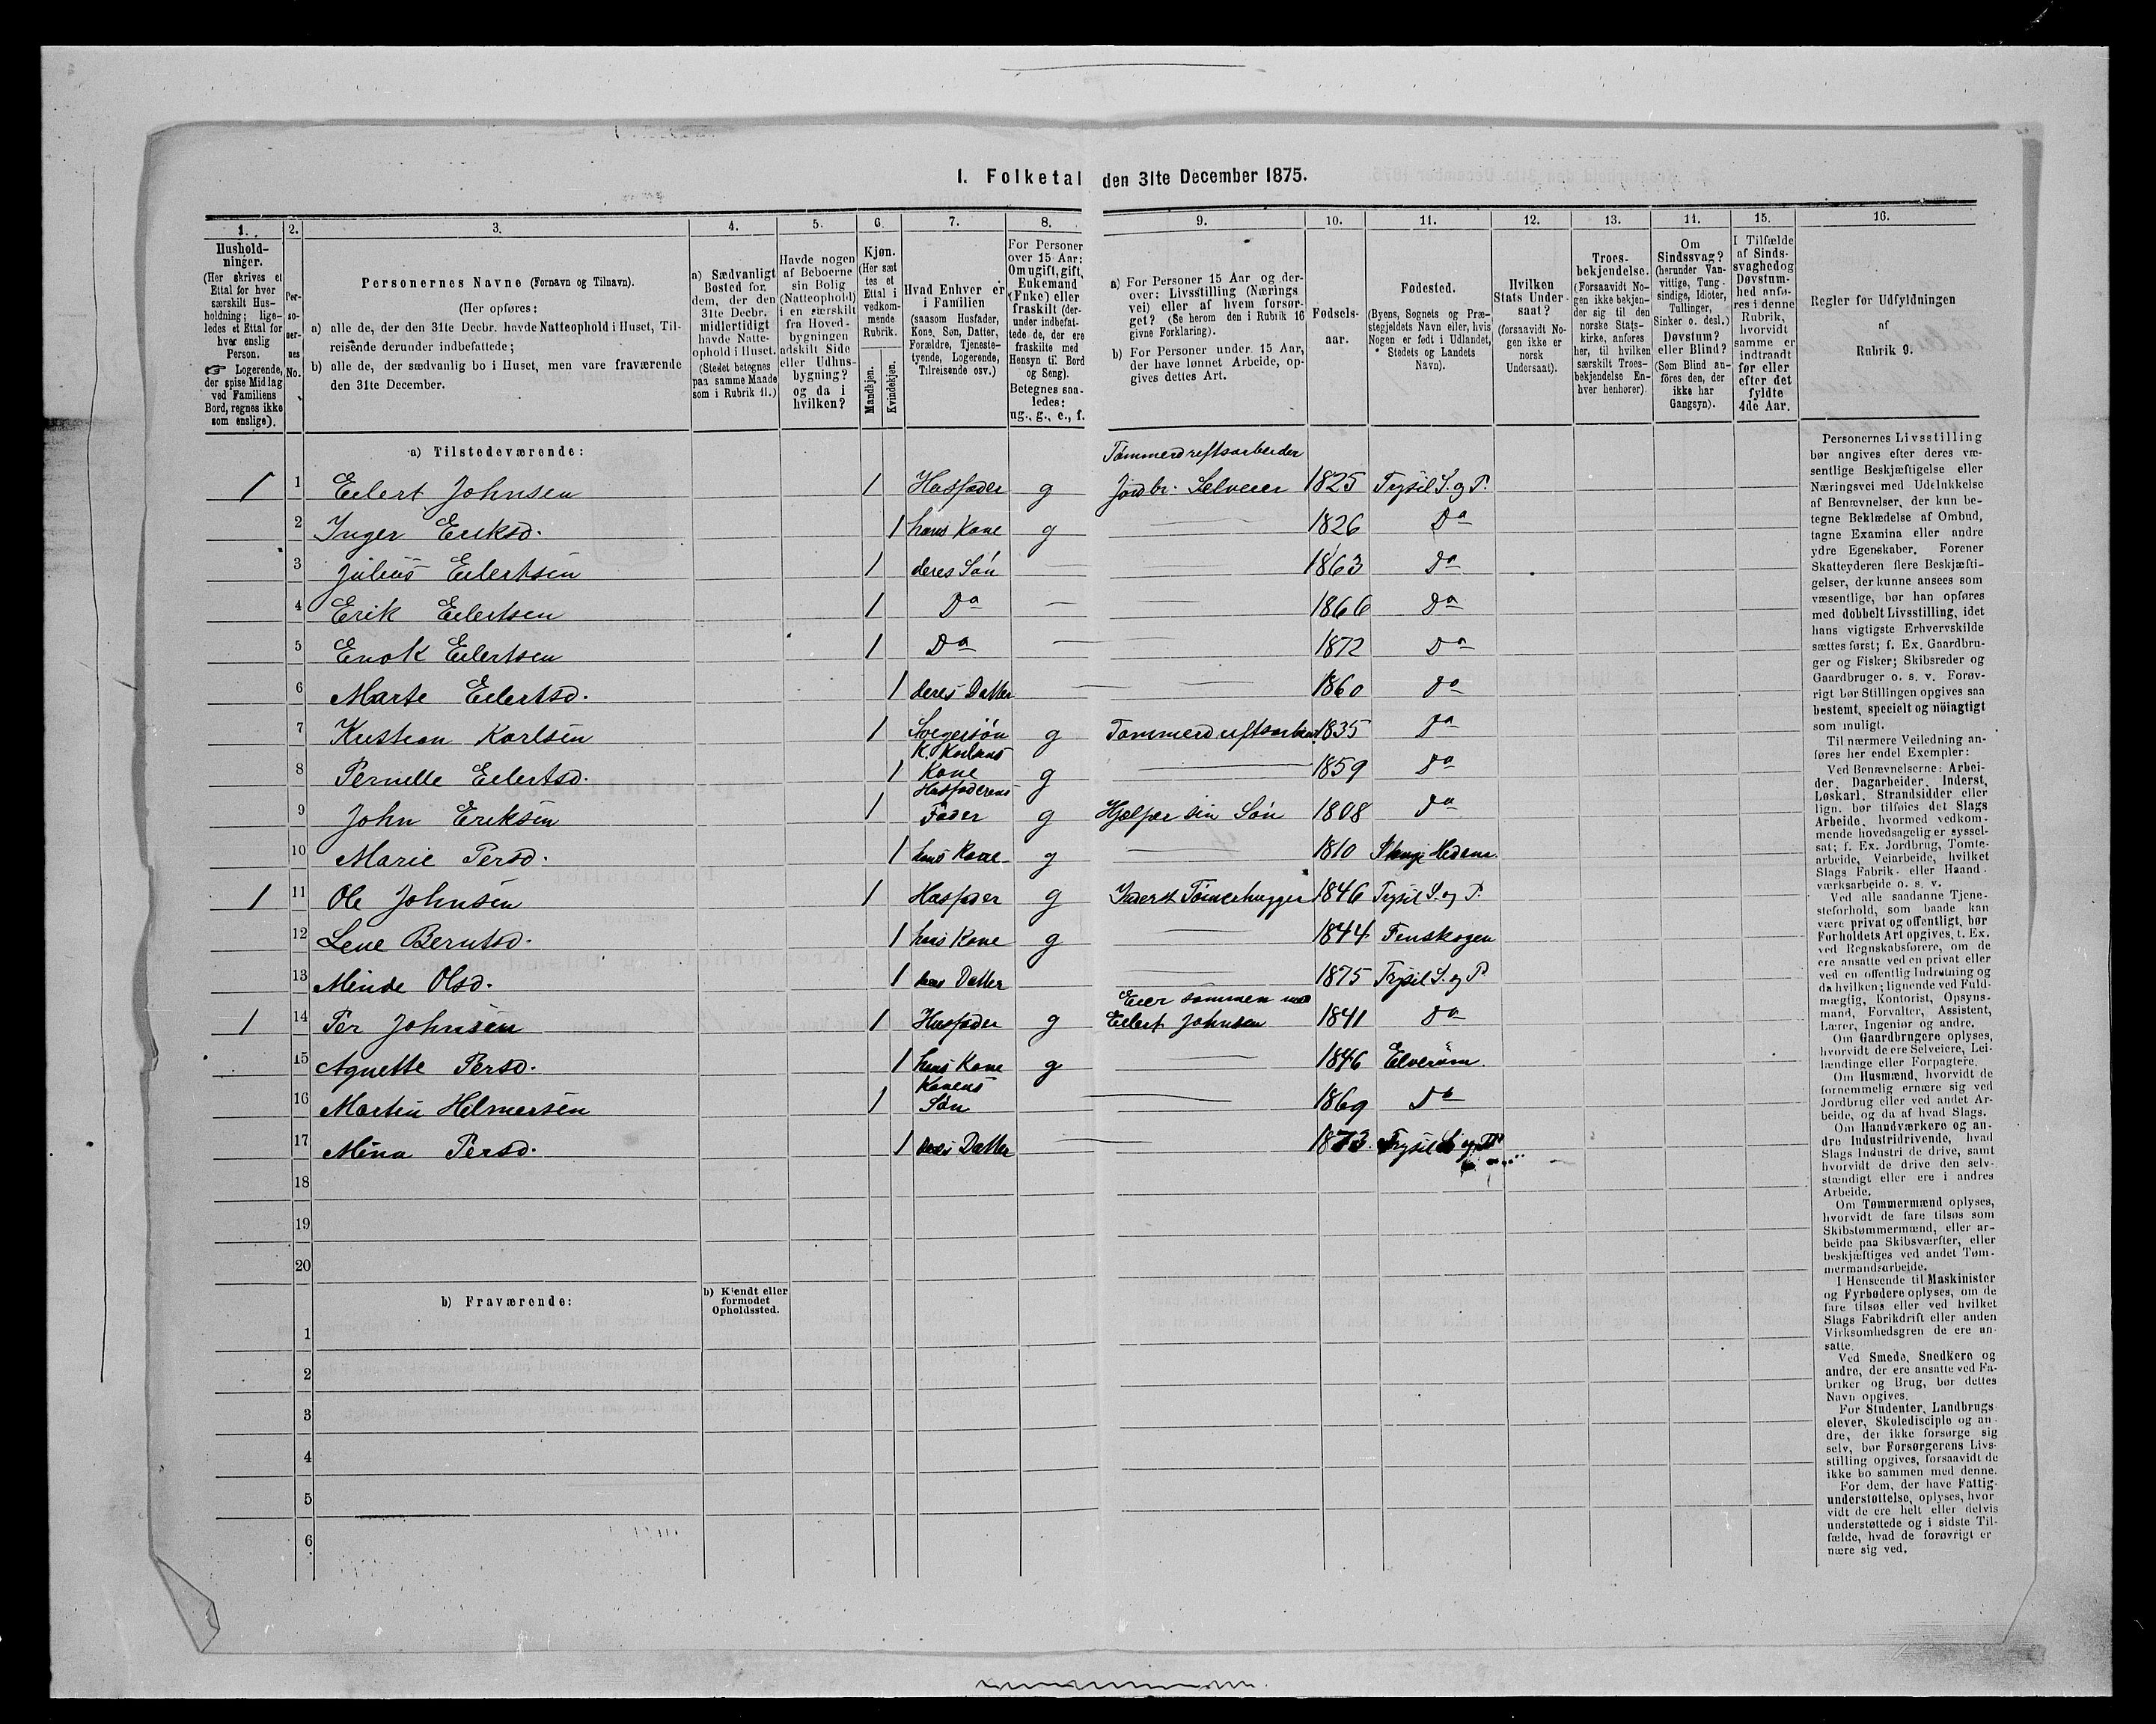 I. Folketal den 31te December 1875.
1. 2. 3. 4. 5. 6. 7. 8. 9. 10. 11. 12. 13. 14. 15. 16.
Hushold-
ninger.
(Her skrives et
Ettal for hver
særskilt Hus-
holdning; lige-
ledes et Ettal for
hver enslig
Person.
☞ Logerende,
der spise Middag
ved Familiens
Bord, regnes ikke
som enslige).
Per-
so-
ner-
nes
No.
Personernes Navne (Fornavn og Tilnavn).
(Her opføres:
a) alle de, der den 31te Decbr. havde Natteophold i Huset, Til-
reisende derunder indbefattede;
b) alle de, der sædvanlig bo i Huset, men vare fraværende
den 31te December.
a) Sædvanligt
Bosted for
dem, der den
31te Decbr.
midlertidigt
havde Natte-
ophold i Huset.
(Stedet betegnes
paa samme Maade
som i Rubrik 11.)
Havde nogen
af Beboerne
sin Bolig
(Natteophold)
i en særskilt
fra Hoved-
bygningen
adskilt Side
eller Udhus-
bygning?
og da i
hvilken?
Kjøn.
(Her sæt
tes et
Ettal i
vedkom-
mende
Rubrik.
Mandkjøn.
Kvindekjøn.
Hvad Enhver er
i Familien
(saasom Husfader,
Kone, Søn, Datter,
Forældre, Tjeneste-
tyende, Logerende,
Tilreisende osv.)
For Personer
over 15 Aar:
Om ugift, gift,
Enkemand
(Enke) eller
fraskilt (der-
under indbefat-
tede de, der ere
fraskilte med
Hensyn til Bord
og Seng).
Betegnes saa-
ledes:
ug., g., e., f.
a) For Personer 15 Aar og der-
over: Livsstilling (Nærings
vei) eller af hvem forsør-
get? (Se herom den i Rubrik 16
givne Forklaring).
b) For Personer under 15 Aar,
der have lønnet Arbeide, op-
gives dettes Art.
Fødsels-
aar.
Fødested.
(Byens, Sognets og Præ-
stegjeldets Navn eller, hvis
Nogen er født i Udlandet,
Stedets og Landets
Navn).
Hvilken
Stats Under-
saat?
(forsaavidt No-
gen ikke er
norsk
Undersaat).
Troes-
bekjendelse.
(Forsaavidt No-
gen ikke bekjen-
der sig til den
norske Stats-
kirke, anføres
her, til hvilken
særskilt Troes-
bekjendelse En-
hver henhører).
Om
Sindssvag?
(herunder Van-
vittige, Tung-
sindige, Idioter,
Tullinger,
Sinker o. desl.)
Døvstum?
eller Blind?
(Som Blind an-
føres den, der
ikke har
Gangsyn).
I Tilfælde
af Sinds-
svaghed og
Døvstum-
hed anfø-
res i denne
Rubrik,
hvorvidt
samme er
indtraadt
før eller
efter det
fyldte
4de Aar.
Regler for Udfyldningen
af
Rubrik 9.
a) Tilstedeværende:
Tømmerdreftsarbeider
1 1 Eilert Johnsen 1 Husfader g Jordbr. Selveier 1825 Trysil S. og P.
2 Inger Eriksd. 1 hans Kone g 1826 Do
3 Julius Eilertsen 1 deres Søn 1863 Do
4 Erik Eilertsen 1 Do 1866 Do
5 Enok Eilertsen 1 Do 1872 Do
6 Marte Eilertsd. 1 deres Datter 1860 Do
7 Kristian Karlsen 1 Svegersøn g Tømmerdriftsarbeid 1835 Do
K. Karlsens
8 Pernille Eilertsd. 1 Kone g 1859 Do
Husfaderens
9 John Eriksen 1 Fader g Hjælper sin Søn 1808 Do
10 Marie Persd. 1 hans Kone g 1810 Stange Hedem.
1 11 Ole Johnsen 1 Husfader g Inderst Tømerhugger 1846 Trysil S. og P.
12 Lene Berntsd. 1 hans Kone g 1844 Finskogen
13 Minde Olsd. 1 deres Datter 1875 Trysil S. og P.
Eier sammen med
1 14 Per Johnsen 1 Husfader g Eilert Johnsen 1841 Do
15 Agnette Persd. 1 hans Kone g 1846 Elverum.
Konens
16 Martin Helmersen 1 Søn 1869 Do
17 Mina Persd. 1 deres Datter 1873. Trysil S. og P.
18
19
20
b) Fraværende:
b) Kjendt eller
formodet
Opholdssted.
1
2
3
4
5
6
Personernes Livsstilling
bør angives efter deres væ-
sentlige Beskjæftigelse eller
Næringsvei med Udelukkelse
af Benævnelser, der kun be-
tegne Beklædelse af Ombud,
tagne Examina eller andre
ydre Egenskaber. Forener
Skatteyderen flere Beskjæfti-
gelser, der kunne ansees som
væsentlige, bør han opføres
med dobbelt Livsstilling, idet
hans vigtigste Erhvervskilde
sættes først; f. Ex. Gaardbru-
ger og Fisker; Skibsreder og
Gaardbruger o. s. v. Forøv-
rigt bør Stillingen opgives saa
bestemt, specielt og nöiagtigt
som muligt.
Til nærmere Veiledning an-
føres her endel Exempler:
Ved Benævnelserne: Arbei-
der, Dagarbeider, Inderst,
Løskarl, Strandsidder eller
lign. bør tilføies det Slags
Arbeide, hvormed vedkom-
mende hovedsagelig er syssel-
sat; f. Ex. Jordbrug, Tomte-
arbeide, Veiarbeide, hvilket
Slags Fabrik- eller Haand-
værksarbeide o. s. v.
Ved alle saadanne Tjene-
steforhold, som baade kan
være privat og offentligt, bør
Forholdets Art opgives, t. Ex.
ved Regnskabsførere, om de
ere ansatte ved en privat eller
ved en offentlig Indretning og
da hvilken; lignende ved Fuld-
mægtig, Kontorist, Opsyns-
mand, Forvalter, Assistent,
Lærer, Ingeniør og andre.
Om Gaardbrugere oplyses,
hvorvidt de ere Selveiere, Lei-
lændinge eller Forpagtere.
Om Husmænd, hvorvidt de
fornemmelig ernære sig ved
Jordbrug eller ved andet Ar-
beide, og da af hvad Slags.
Om Haandværkere og an-
dre Industridrivende, hvad
Slags Industri de drive, samt
hvorvidt de drive den selv-
stændigt eller ere i andres
Arbeide.
Om Tømmermænd oplyses,
hvorvidt de fare tilsøs som
Skibstømmermænd, eller ar-
beide paa Skibsværfter, eller
beskjæftiges ved andet Tøm-
mermandsarbeide.
I Henseende til Maskinister
og Fyrbødere oplyses, om de
fare tilsøs eller ved hvilket
Slags Fabrikdrift eller anden
Virksomhedsgren de ere an-
satte.
Ved Smede, Snedkere og
andre, der ere ansatte ved Fa-
briker og Brug, bør dettes
Navn opgives.
For Studenter, Landbrugs-
elever, Skoledisciple og an-
dre, der ikke forsørge sig
selv, bør Forsørgerens Livs-
stilling opgives, forsaavidt de
ikke bo sammen med denne.
For dem, der have Fattig-
understøttelse, oplyses, hvor
vidt de ere helt eller delvis
understøttede og i sidste Til-
fælde, hvad de forøvrigt er
nære sig ved.